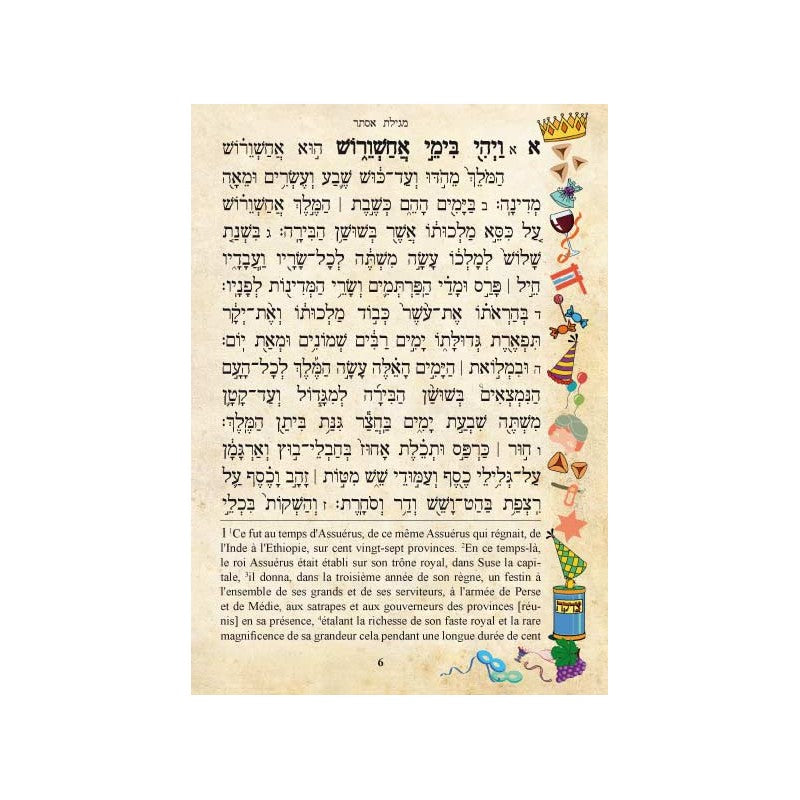 מגילת אסתר
א א וַיְהִ֖י בִּימֵ֣י אֲחַשְׁוֵר֑וֹשׁ ה֣וּא אֲחַשְׁוֵר֗וֹשׁ
הַמֹּלֵךְ֙ מֵהֹ֣דּוּ וְעַד־כּ֔וּשׁ שֶׁ֛בַע וְעֶשְׂרִ֥ים וּמֵאָ֖ה
מְדִינָֽה׃ ב בַּיָּמִ֖ים הָהֵ֑ם כְּשֶׁ֣בֶת | הַמֶּ֣לֶךְ אֲחַשְׁוֵר֗וֹשׁ
עַ֚ל כִּסֵּ֣א מַלְכוּת֔וֹ אֲשֶׁ֖ר בְּשׁוּשַׁ֥ן הַבִּירָֽה׃ ג בִּשְׁנַ֤ת
שָׁלוֹשׁ֙ לְמָלְכ֔וֹ עָשָׂ֣ה מִשְׁתֶּ֔ה לְכָל־שָׂרָ֖יו וַעֲבָדָ֑יו
חֵ֣יל | פָּרַ֣ס וּמָדַ֗י הַֽפַּרְתְּמִ֛ים וְשָׂרֵ֥י הַמְּדִינ֖וֹת לְפָנָֽיו׃
ד בְּהַרְאֹת֗וֹ אֶת־עֹ֙שֶׁר֙ כְּב֣וֹד מַלְכוּת֔וֹ וְאֶ֨ת־יְקָ֔ר
תִּפְאֶ֖רֶת גְּדוּלָּת֑וֹ יָמִ֣ים רַבִּ֔ים שְׁמוֹנִ֥ים וּמְאַ֖ת יֽוֹם׃
ה וּבִמְל֣וֹאת | הַיָּמִ֣ים הָאֵ֗לֶּה עָשָׂ֣ה הַמֶּ֡לֶךְ לְכָל־הָעָ֣ם
הַנִּמְצְאִים֩ בְּשׁוּשַׁ֨ן הַבִּירָ֜ה לְמִגָּ֧דוֹל וְעַד־קָטָ֛ן
מִשְׁתֶּ֖ה שִׁבְעַ֣ת יָמִ֑ים בַּחֲצַ֕ר גִּנַּ֥ת בִּיתַ֖ן הַמֶּֽלֶךְ׃
ו ח֣וּר | כַּרְפַּ֣ס וּתְכֵ֗לֶת אָחוּז֙ בְּחַבְלֵי־ב֣וּץ וְאַרְגָּמָ֔ן
עַל־גְּלִ֥ילֵי כֶ֖סֶף וְעַמּ֣וּדֵי שֵׁ֑שׁ מִטּ֣וֹת | זָהָ֣ב וָכֶ֗סֶף עַ֛ל
רִֽצְפַ֥ת בַּהַט־וָשֵׁ֖שׁ וְדַ֥ר וְסֹחָֽרֶת׃ ז וְהַשְׁקוֹת֙ בִּכְלֵ֣י
I ¹Ce fut au temps d'Assuérus, de ce même Assuérus qui régnait, de
l'Inde à l'Ethiopie, sur cent vingt-sept provinces. ²En ce temps-là,
le roi Assuérus était établi sur son trône royal, dans Suse la capi-
tale, ³il donna, dans la troisième année de son règne, un festin à
l'ensemble de ses grands et de ses serviteurs, à l'armée de Perse
et de Médie, aux satrapes et aux gouverneurs des provinces [réu-
nis] en sa présence, ⁴étalant la richesse de son faste royal et la rare
magnificence de sa grandeur cela pendant une longue durée de cent
6